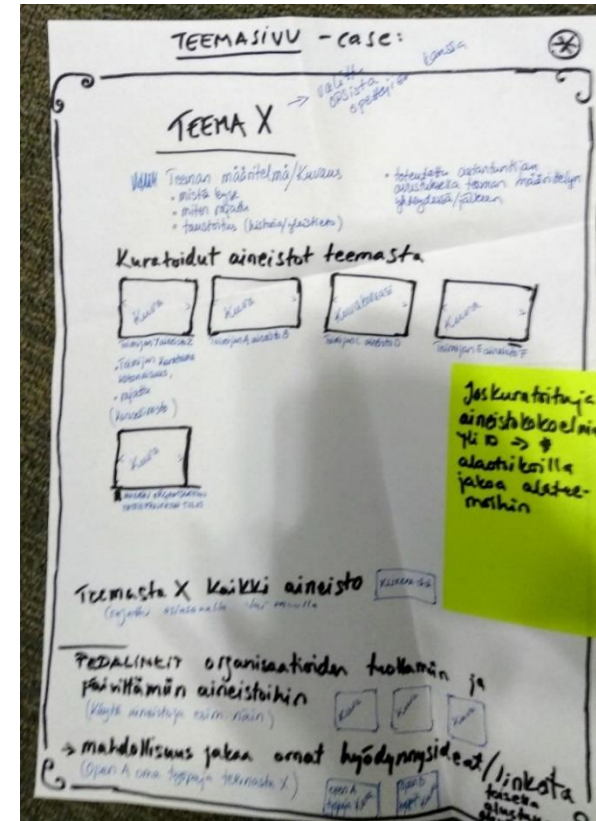 TEEMASIVU - case:
TEEMA X
→ valittu
opsista
opettajien
kanssa
Teeman määritelmä/Kuvaus
• mistä kyse
• miten rajattu
• taustoitus (historia/yleistieto)
• toteutettu asiantuntijan
avustuksella teeman määrittelyn
yhteydessä/jälkeen
Kuratoidut aineistot teemasta
Kuva
Kuva
Kuva
Toimijan A aineisto B
Toimijan C aineisto D
Toimijan E aineisto F
• Toimijan kuratoima
kokonaisuus,
• rajattu
Kuva
Jos kuratoituja
aineistokokoelmia
yli 10 →
alaotsikoilla
jakaa alatee-
moihin
Teemasta X kaikki aineisto
PEDALINKIT organisaatioiden tuottamiin ja
päivittämiin aineistoihin
(Käytä aineistoja esim. näin)
Kuva
Kuva
Kuva
→ mahdollisuus jakaa omat hyödynnysideat/linkata
(Open A oma työpaja teemasta X)
open A
open B